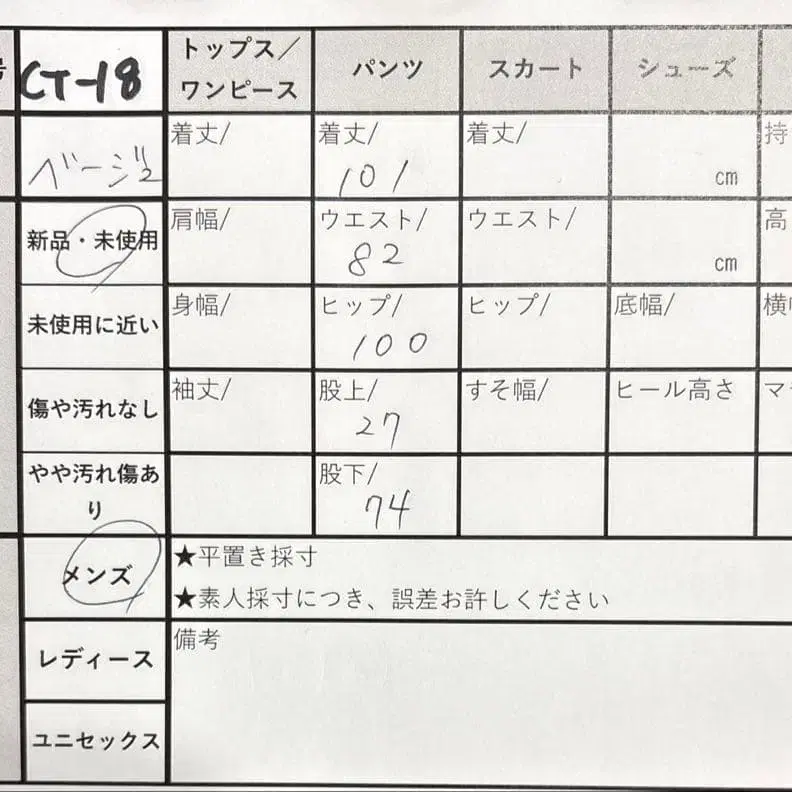 CT-18 トップス／ パンツ スカート シューズ
ワンピース
ベージュ 着丈/ 着丈/ 着丈/ 持
101 cm
新品・未使用 肩幅/ ウエスト/ ウエスト/ 高
82 cm
未使用に近い 身幅/ ヒップ/ ヒップ/ 底幅/
100
傷や汚れなし 袖丈/ 股上/ すそ幅/ ヒール高さ マ
27
やや汚れ傷あ 股下/
り 74
メンズ ★平置き採寸
★素人採寸につき、誤差お許しください
レディース 備考
ユニセックス